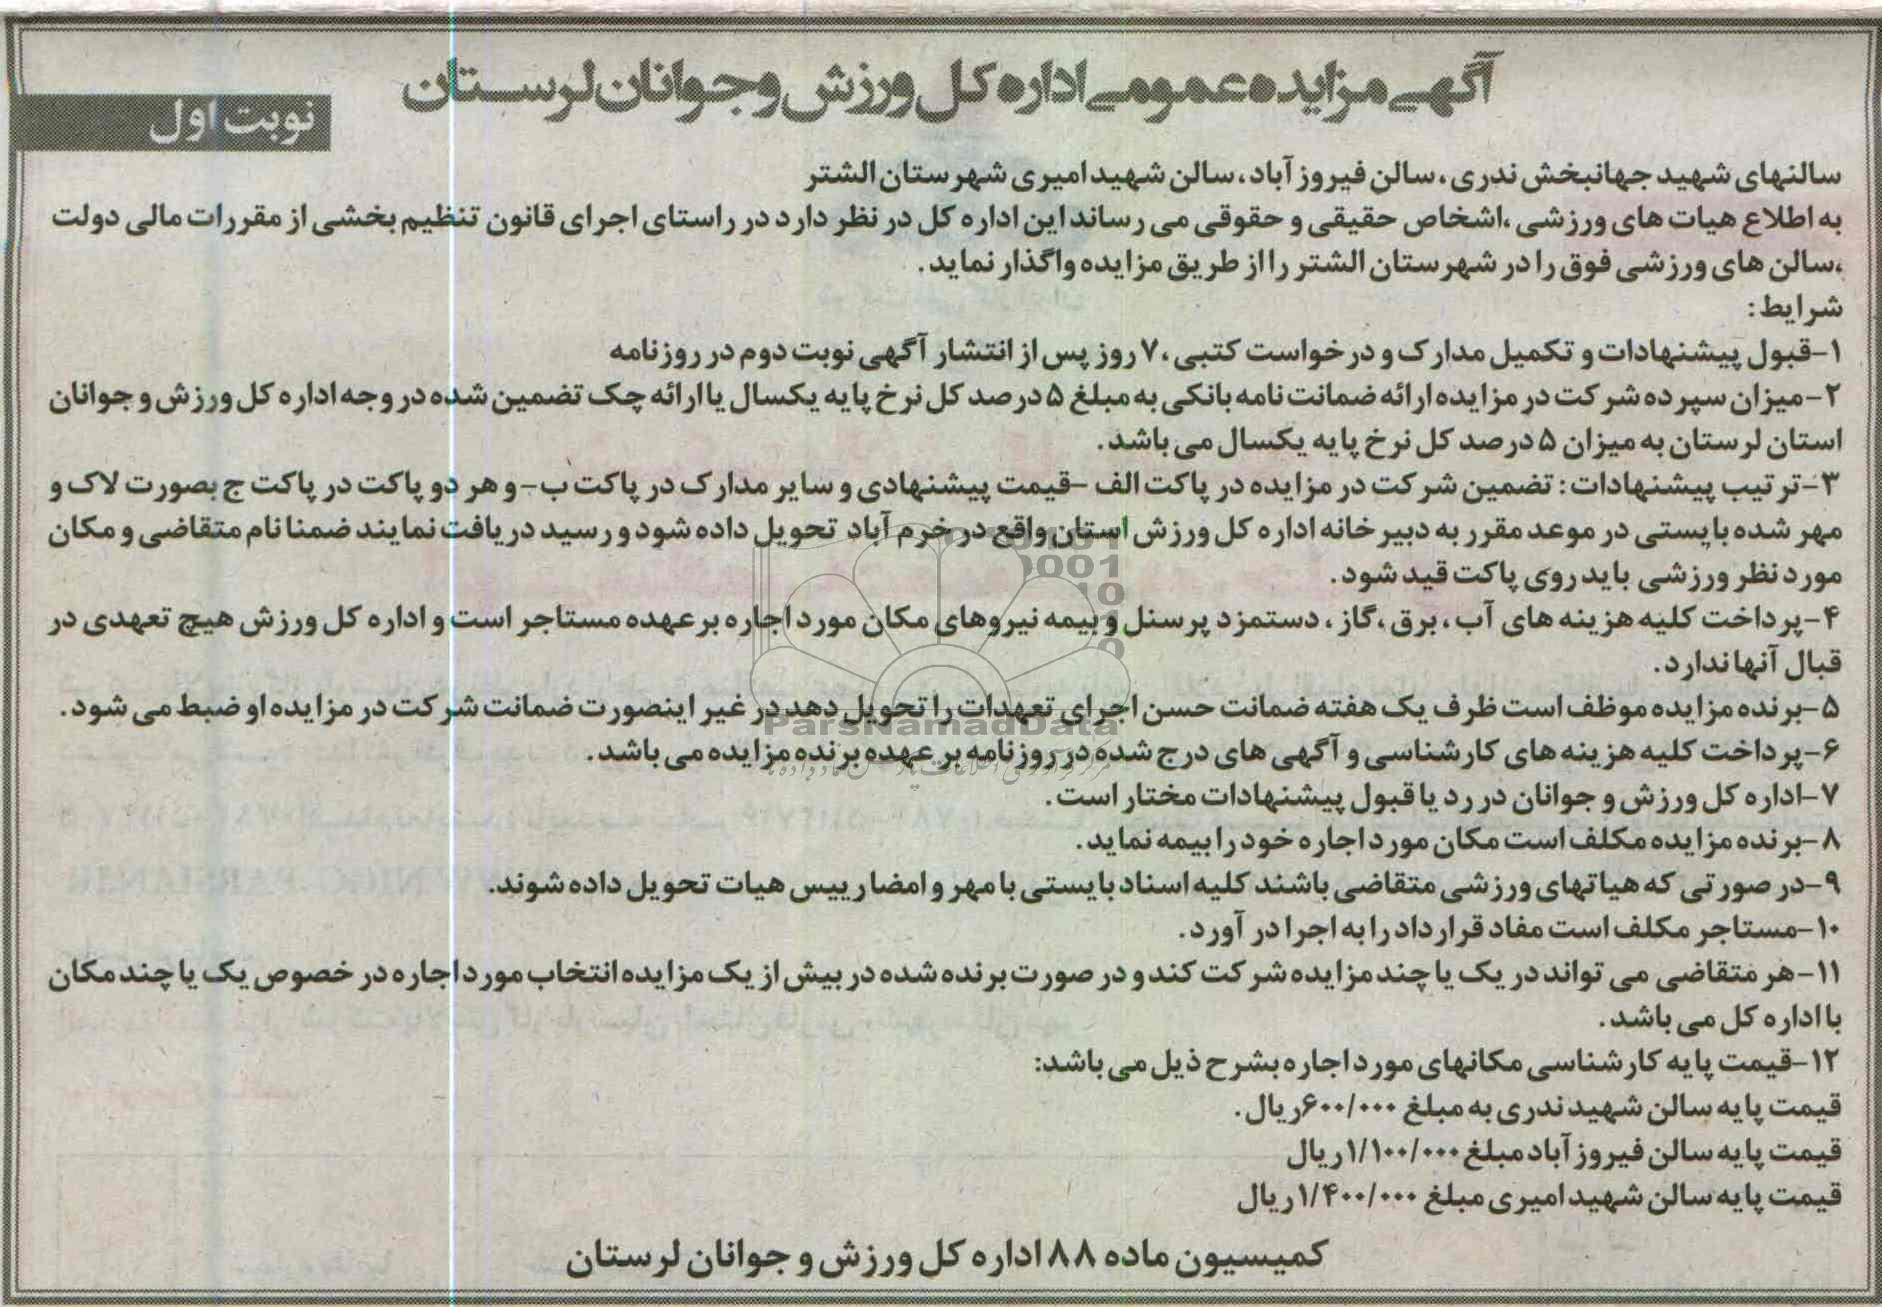 آگهی مزایده عمومی اداره کل ورزش و جوانان لرستان
نوبت اول
سالنهای شهید جهانبخش ندری، سالن فیروز آباد، سالن شهید امیری شهرستان الشتر
به اطلاع هیات های ورزشی ،اشخاص حقیقی و حقوقی می رساند این اداره کل در نظر دارد در راستای اجرای قانون تنظیم بخشی از مقررات مالی دولت
،سالن های ورزشی فوق را در شهرستان الشتر را از طریق مزایده واگذار نماید.
شرایط:
۱-قبول پیشنهادات و تکمیل مدارک و درخواست کتبی ،۷ روز پس از انتشار آگهی نوبت دوم در روزنامه
۲-میزان سپرده شرکت در مزایده ارائه ضمانت نامه بانکی به مبلغ ۵ درصد کل نرخ پایه یکسال یا ارائه چک تضمین شده در وجه اداره کل ورزش و جوانان
استان لرستان به میزان ۵ درصد کل نرخ پایه یکسال می باشد.
۳-ترتیب پیشنهادات: تضمین شرکت در مزایده در پاکت الف -قیمت پیشنهادی و سایر مدارک در پاکت ب- و هر دو پاکت در پاکت ج بصورت لاک و
مهر شده بایستی در موعد مقرر به دبیرخانه اداره کل ورزش استان واقع در خرم آباد تحویل داده شود و رسید دریافت نمایند ضمنا نام متقاضی و مکان
مورد نظر ورزشی باید روی پاکت قید شود.
۴-پرداخت کلیه هزینه های آب، برق ،گاز، دستمزد پرسنل و بیمه نیروهای مکان مورد اجاره بر عهده مستاجر است و اداره کل ورزش هیچ تعهدی در
قبال آنها ندارد.
۵-برنده مزایده موظف است ظرف یک هفته ضمانت حسن اجرای تعهدات را تحویل دهد در غیر اینصورت ضمانت شرکت در مزایده او ضبط می شود.
ParsNamadData
۶-پرداخت کلیه هزینه های کارشناسی و آگهی های درج شده در روزنامه بر عهده برنده مزایده می باشد.
۷-اداره کل ورزش و جوانان در رد یا قبول پیشنهادات مختار است.
۸-برنده مزایده مکلف است مکان مورد اجاره خود را بیمه نماید.
۹-در صورتی که هیاتهای ورزشی متقاضی باشند کلیه اسناد بایستی با مهر و امضا رییس هیات تحویل داده شوند.
۱۰-مستاجر مکلف است مفاد قرارداد را به اجرا در آورد.
۱۱-هر متقاضی می تواند در یک یا چند مزایده شرکت کند و در صورت برنده شده در بیش از یک مزایده انتخاب مورد اجاره در خصوص یک یا چند مکان
با اداره کل می باشد.
۱۲-قیمت پایه کارشناسی مکانهای مورد اجاره بشرح ذیل می باشد:
قیمت پایه سالن شهید ندری به مبلغ ۶۰۰/۰۰۰ریال.
قیمت پایه سالن فیروز آباد مبلغ ۱/۱۰۰/۰۰۰ریال
قیمت پایه سالن شهید امیری مبلغ ۱/۴۰۰/۰۰۰ریال
کمیسیون ماده ۸۸ اداره کل ورزش و جوانان لرستان